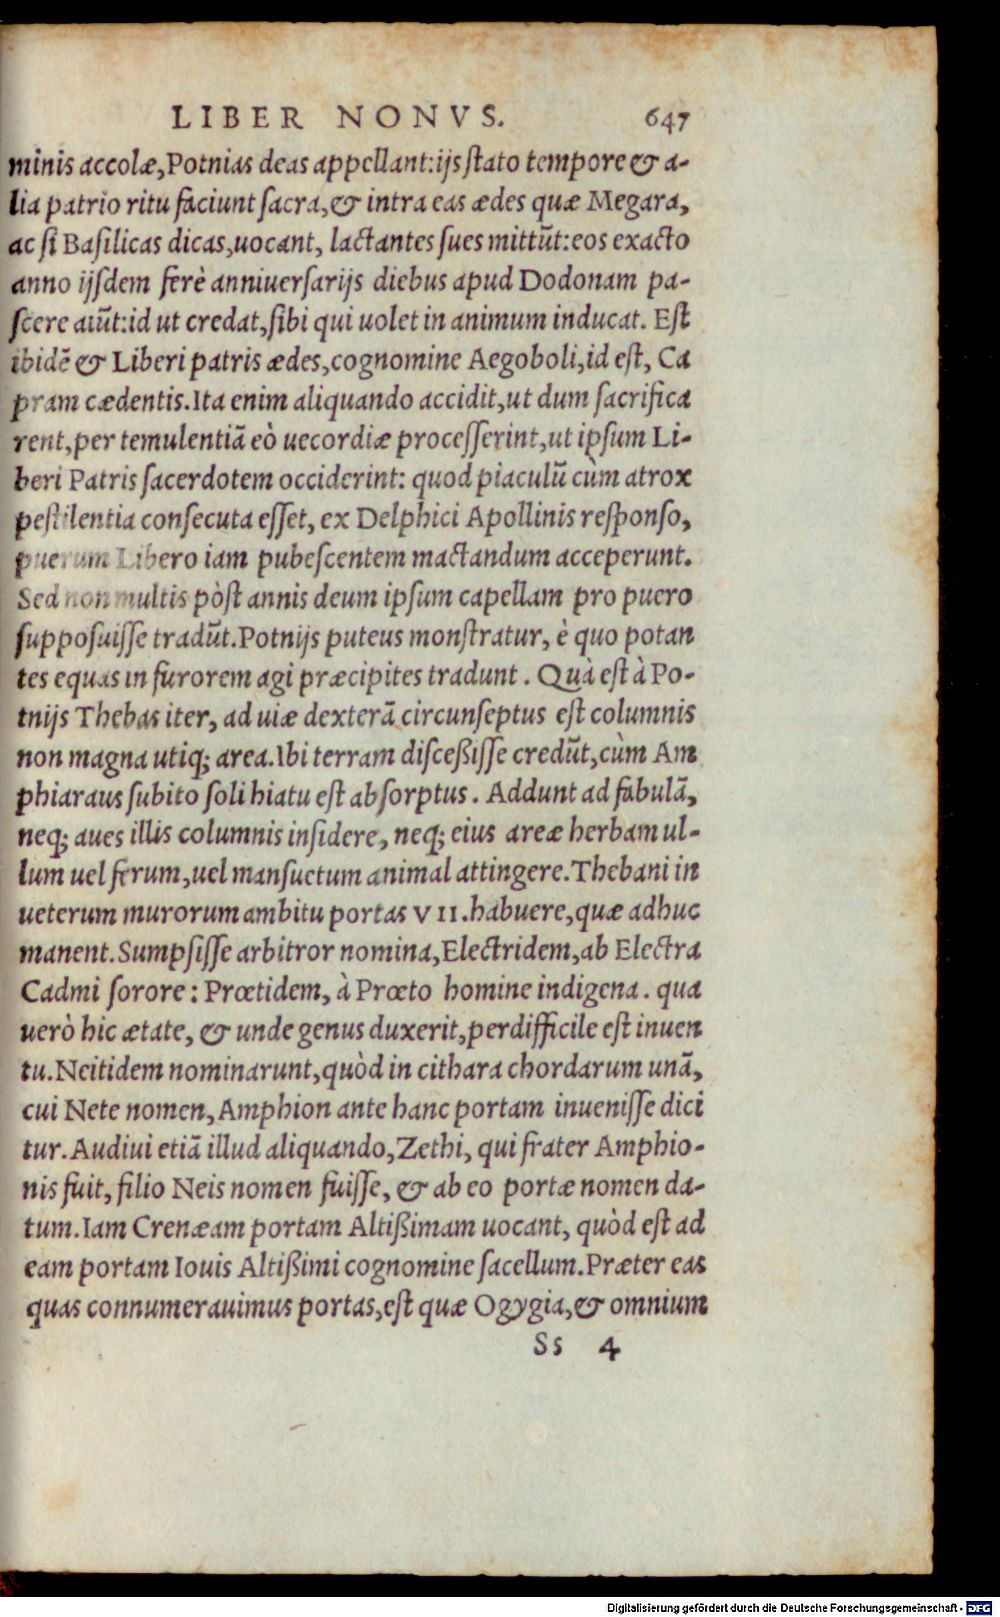 LIBER NONVS. 647
minis accolæ, Potnias deas appellant: ijs stato tempore & a-
lia patrio ritu faciunt sacra, & intra eas ædes quæ Megara,
ac si Basilicas dicas, uocant, lactantes sues mittūt: eos exacto
anno ijsdem ferè anniuersarijs diebus apud Dodonam pa-
scere aiūt: id ut credat, sibi qui uolet in animum inducat. Est
ibidē & Liberi patris ædes, cognomine Aegoboli, id est, Ca
pram cædentis. Ita enim aliquando accidit, ut dum sacrifica
rent, per temulentiā eò uecordiæ processerint, ut ipsum Li-
beri Patris sacerdotem occiderint: quod piaculū cùm atrox
pestilentia consecuta esset, ex Delphici Apollinis responso,
puerum Libero iam pubescentem mactandum acceperunt.
Sed non multis pòst annis deum ipsum capellam pro puero
supposuisse tradūt. Potnijs puteus monstratur, è quo potan
tes equas in furorem agi præcipites tradunt. Quà est à Po-
tnijs Thebas iter, ad uiæ dexterā circunseptus est columnis
non magna utiq; area. Ibi terram disceßisse credūt, cùm Am
phiaraus subito soli hiatu est absorptus. Addunt ad fabulā,
neq; aues illis columnis insidere, neq; eius areæ herbam ul-
lum uel ferum, uel mansuetum animal attingere. Thebani in
ueterum murorum ambitu portas VII. habuere, quæ adhuc
manent. Sumpsisse arbitror nomina, Electridem, ab Electra
Cadmi sorore: Prœtidem, à Prœto homine indigena. qua
uerò hic ætate, & unde genus duxerit, perdifficile est inuen
tu. Neitidem nominarunt, quòd in cithara chordarum unā,
cui Nete nomen, Amphion ante hanc portam inuenisse dici
tur. Audiui etiā illud aliquando, Zethi, qui frater Amphio-
nis fuit, filio Neis nomen fuisse, & ab eo portæ nomen da-
tum. Iam Crenæam portam Altißimam uocant, quòd est ad
eam portam Iouis Altißimi cognomine sacellum. Præter eas
quas connumerauimus portas, est quæ Ogygia, & omnium
Ss 4
Digitalisierung gefördert durch die Deutsche Forschungsgemeinschaft - DFG